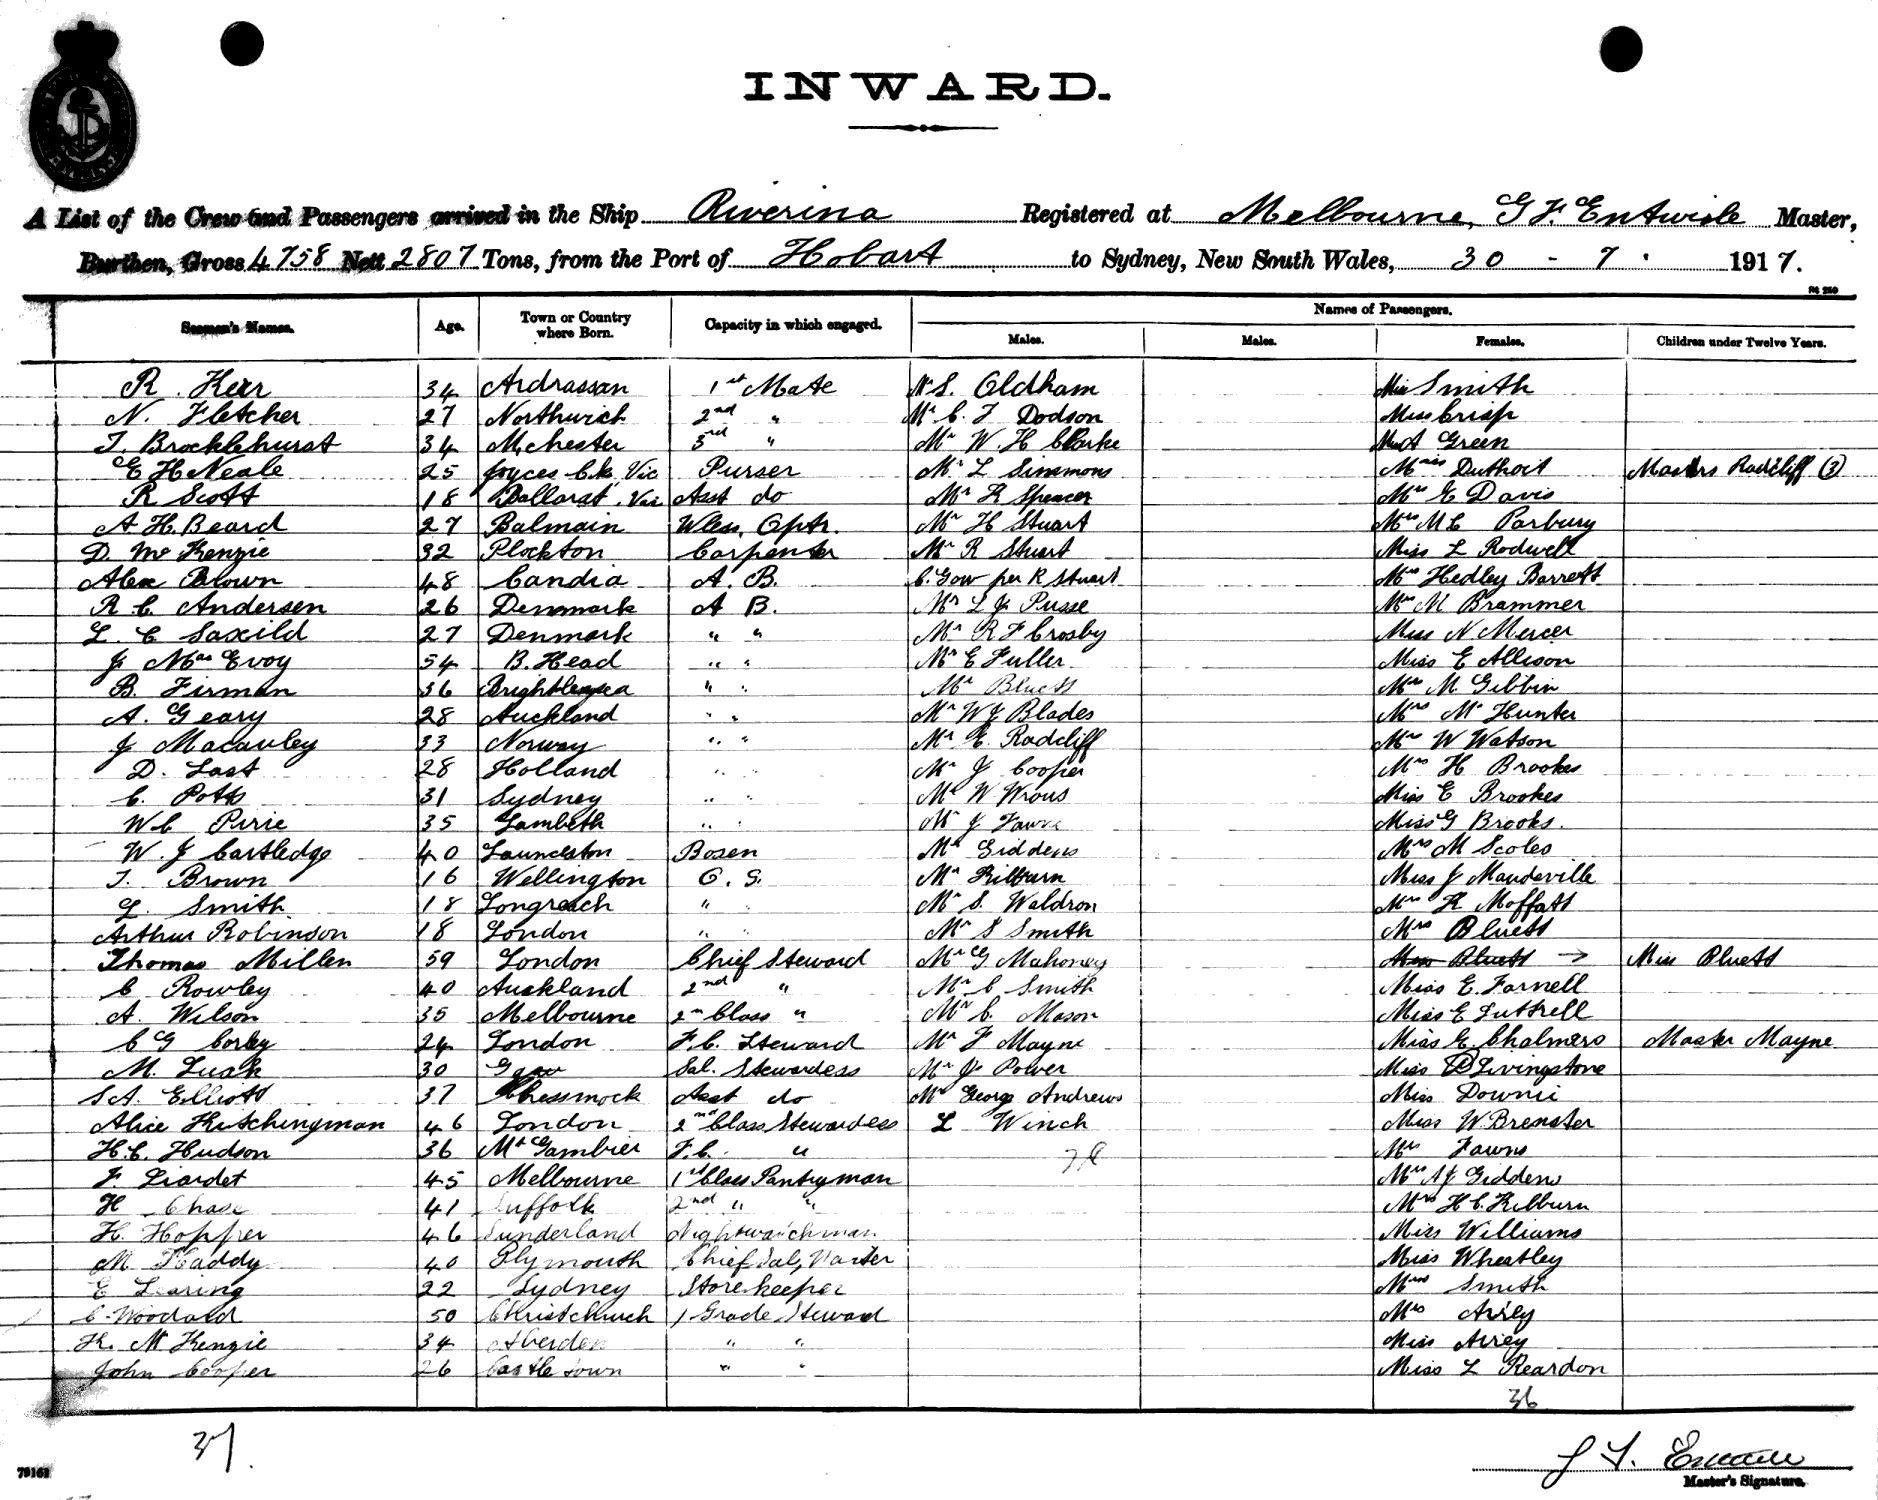 INWARD.
A List of the Crew and Passengers arrived in the Ship Riverina Registered at Melbourne, G F. Entwisle Master,
Burthen, Gross 4758 Nett 2807 Tons, from the Port of Hobart to Sydney, New South Wales, 30 - 7 . 1917.
Names of Passengers.
Seamen's Names. Age. Town or Country where Born. Capacity in which engaged. Males. Males. Females. Children under Twelve Years.
R. Kerr 34 Ardrassan 1st Mate Mr S. Oldham Miss Smith
N. Fletcher 27 Northwich 2nd " Mr C. F Dodson Miss Crisp
T. Brocklehurst 34 Mchester 3rd " Mr W. H Clarke Green
E H Neale 25 Joyces Ck, Vic Purser Mr L Simmons Miss Duthoit Masters Radcliff (3)
R Scott 18 Ballarat, Vic Asst do Mr K Spencer Mrs E Davis
A. H. Beard 27 Balmain Wless. Optr. Mr H Stuart Mrs M C Parbury
D. Mc Kenzie 32 Plockton Carpenter Mr R Stuart Miss L Rodwell
Alex Brown 48 Candia A. B. C. Gow per R Stuart Mrs Hedley Barrett
R. C. Andersen 26 Denmark A B. Mr L J Pusse Mrs M Brammer
L. C Saxild 27 Denmark " " Mr R F Crosby Miss N Mercer
J Mac Evoy 54 B. Head " " Mr E Fuller Miss E Allison
B. Firman 36 Brightlingsea " " Mr Bluett Mrs M. Gibbin
A. Geary 28 Auckland " " Mr W J Blades Mrs Mc Hunter
J Macauley 33 Norway " " Mr E. Radcliff Mrs W Watson
D. Last 28 Holland " " Mr J Cooper Mrs H Brookes
C. Potts 31 Sydney " " Mr W Wrous Miss E Brookes
W C Pirie 35 Lambeth " " Mr J Fawns Miss G Brooks.
W. J Cartledge 40 Launceston Bosen Mr Giddens Mrs M Scoles
T. Brown 16 Wellington O. S. Mr Kilburn Miss J Mandeville
L. Smith 18 Longreach " " Mr S. Waldron Mrs K Moffatt
Arthur Robinson 18 London " " Mr S Smith Mrs Bluett
Thomas Millen 59 London Chief Steward Mr G Mahoney Miss Bluett → Miss Bluett
C Rowley 40 Auckland 2nd " Mr C Smith Miss E. Farnell
A. Wilson 35 Melbourne 2nd Class " Mr C. Mason Miss E Luttrell
C G Corley 24 London F. C. Steward Mr F Mayne Miss E. Chalmers Master Mayne
M. Lusk 30 Sal. Stewardess Mr J Power Miss D Livingstone
S. A. Elliott 37 Asst do Mr George Andrews Miss Downie
Alice Kitchingman 46 London 2nd Class Stewardess L Winch Miss W Brewster
H. C. Hudson 36 Mt Gambier F. C. " Mrs Fawns
F. Liardet 45 Melbourne 1st Class Pantryman Mrs A J Giddens
H Chase 41 Suffolk 2nd " " Mrs H C. Kilburn
H. Hopper 46 Sunderland Nightwatchman Miss Williams
M Haddy 40 Plymouth Chief Sal, Waiter Miss Wheatley
E Learing 22 Sydney Storekeeper Mrs Smith
C. Woodard 50 Christchurch 1 Grade Steward Mrs Airey
K. Mc Kenzie 34 Aberdeen " " Miss Airey
John Cooper 26 Castletown " " Miss L Reardon
36
37.
G F. Entwisle
Master's Signature.